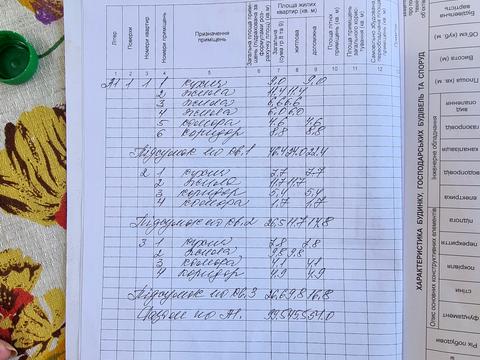 Літер
Поверхи
Номери квартир
Номери приміщень
Призначення приміщень
Площа жилих квартир (кв. м)
Загальна (сума гр 8 та 9)
житлова
допоміжна
1 2 3 4 5 6 7 8 9 10 11 12
А1 1 1 1 кухня 9.0 9.0
2 жила 11.4 11.4
3 жила 6.6 6.6
4 жила 6.0 6.0
5 комора 4.6 4.6
6 коридор 8.8 8.8
Підсумок по кв.1 46.4 24.0 22.4
2 1 кухня 7.7 7.7
2 жила 11.7 11.7
3 коридор 5.4 5.4
4 комора 1.7 1.7
Підсумок по кв.2 26.5 11.7 14.8
3 1 кухня 7.8 7.8
2 жила 9.8 9.8
3 комора 4.1 4.1
4 коридор 4.9 4.9
Підсумок по кв.3 26.6 9.8 16.8
по А1. 99.5 45.5 54.0
ХАРАКТЕРИСТИКА БУДИНКУ, ГОСПОДАРСЬКИХ БУДІВЕЛЬ ТА СПОРУД
Опис основних конструктивних елементів
Інженерне обладнання
Рік побудови
фундамент
стіни
покрівля
перекриття
підлога
електрика
водопровід
каналізація
газопровід
вид опалення
Площа (кв. м)
Висота (м)
Об'єм (куб. м)
Будівельна вартість